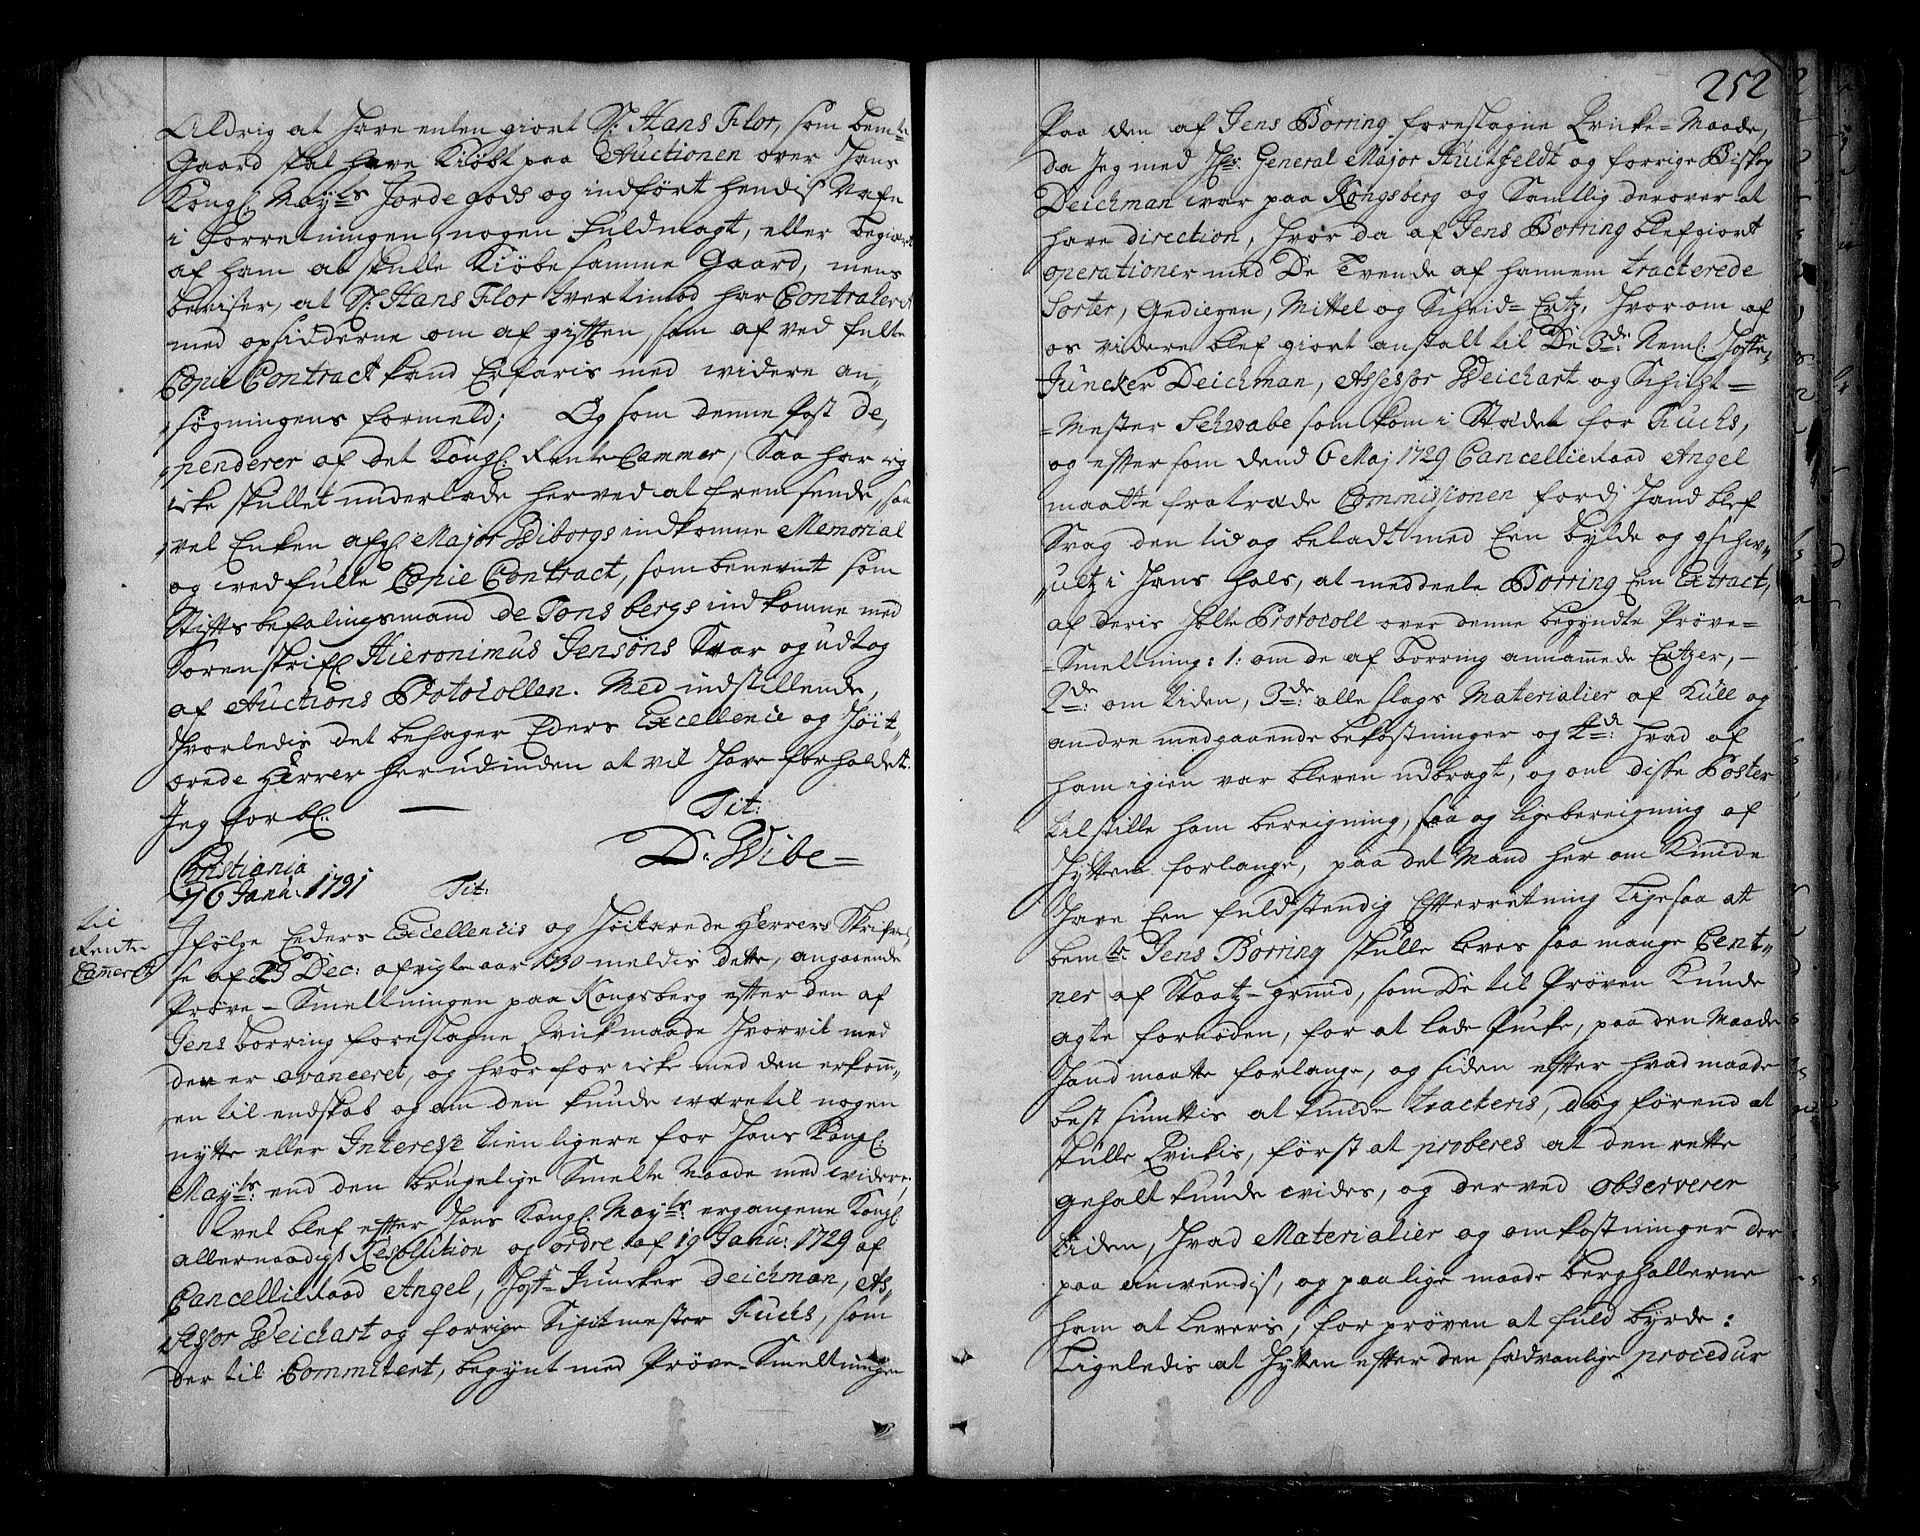 Aldrig at have enten giort Sr. Hans Flor, som bemte
Gaard skal have Kiøbt paa Auctionen over Hans
Kongl: Mayts Jorde gods og indført hendis Nafn
i Forretningen, nogen Fuldmagt, eller begiært
af ham at skulle Kiøbe samme Gaard, mens
beviser, at Sr. Hans Flor tvertimod har Contraheret
med opsidderne om afgifften, som af ved fulte
Copie Contract kand Erfaris med widere an-
søgningens formeld; Og som denne Post de-
penderer af det Kongl: Rente Cammer, Saa har ieg
icke skullet underlade herved at fremsende, saa
vel Enken afg: Major Wiborgs indkomne Memorial
og ved fulte Copie Contract, som benevnt som
Stiftsbefalingsmand de Tonsbergs indkomne med
Sorenskrifr: Hieronimus Jensøns Svar og udtog
af Auctions Protocollen. Med indstillende,
hvorledis det behager Eders Excellence og Høit-
ærede Herrer herudinden at vil have forholdet.
Jeg forbl: — Tit:
D. Wibe
Christiania
d 6 Janu: 1731 Tit:
til
Rente
Cameret
Ifølge Eders Excellences og Høitærede Herrers Skrifvel-
se af 23 Dec: afvigte aar 1730 meldis dette, angaaende
Prøve-Smeltningen paa Kongsberg efter den af
Jens Borring foreslagne Qvickmaade Hvorvit med
den er avanceret, og hvorfor icke med den erkom-
en til endskab og om den kunde være til nogen
nytte eller Interesse tienligere for Hans Kongl:
Mayts: end den brugelige Smelte Maade med widere,
Kvel blef efter Hans Kongl: Mayts: ergangene Kongl:
allernaadigst Resolution og ordre af 19 Janu: 1729 af
Cancellieraad Angel, Hoff-Juncker Deichman, As-
sessor Weichart og forrige Schictmester Fuchs, som
der til Committert, begynt med Prøve-Smeltningen
252
Paa den af Jens Borring foreslagne Qvicke-Maade,
da Jeg med Hr: General Major Huitfeldt og forrige Biskop
Deichman war paa Kongsberg og Samtlig derover at
have direction, hvor da af Jens Borring blef giort
operationer med De Tvende af hannem tracterede
Sorter, Gediegen, Mittel og Scheid-Ertz, hvorom af
os videre blef giort anstalt til De 3de: Neml: Hoff-
Juncker Deichman, Assessor Weichart og Schicht-
Mester Schwabe som kom i Stædet for Fuchs,
og efftersom dend 6 Maj 1729 Cancellieraad Angel
maatte fratræde Commissionen fordj hand blef
Svag den tid og beladt med Een bylde og gschw-
ultz i Hans hals, at meddeele Borring Een Extract,
af deris holte Protocoll over denne begyndte Prøve-
Smeltning: 1: om de af Borring annammede Ertzer, —
2de: om Tiden, 3de: alle slags Materialier af Kull og
andre medgaaende bekostninger og 4de: hvad af
ham igien var bleven udbragt, og om disse Poster
tilstille ham bereigning, saa og lige bereigning af
Hytten forlange, paa det Mand her om Kunde
have Een fuldstendig Efterretning Ligesaa at
bemte: Jens Borring skulle loves saa mange Cent-
ner af Staatz-grund, som De til Prøven Kunde
agte fornøden, for at lade Pucke, paa den Maade
hand maatte forlange, og siden efter hvad maade
best fiunttis at kunde tracteris, dog førend at
skulle Qvickis, først at proberes at den rette
gehalt kunde vides, og derved observerer
Tiden, hvad Materialier og omkostninger der
paa anvendis, og paa lige maade berghallerne
ham at Leveris, for prøven at fuld byrde:
Ligeledis at Hytten efter den sædvanlige procedur